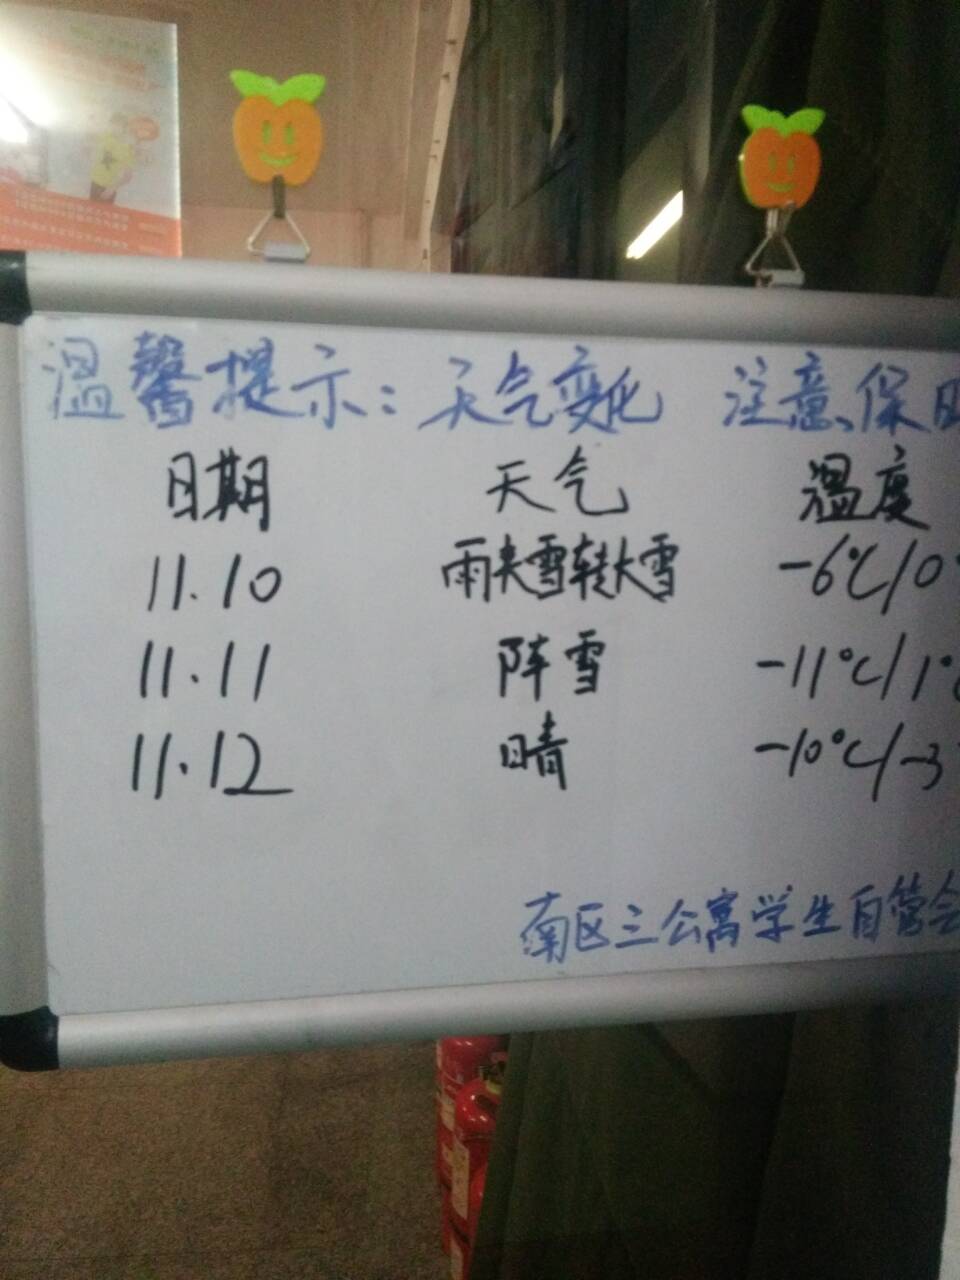 温馨提示：天气变化 注意保
日期 天气 温度
11.10 雨夹雪转大雪 -6℃/0°
11.11 阵雪 -11℃/1℃
11.12 晴 -10℃/-3
南区三公寓学生自管会